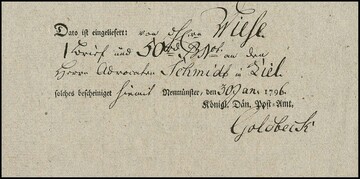 Dato ist eingeliefert: von Hrn Wiese
1 Brief und 50 an den
Herrn Advocaten Schmidt in Kiel
solches bescheiniget hiemit Neumünster, den 30 Jan. 1796.
Königl. Dän. Post-Amt.
Goldbeck